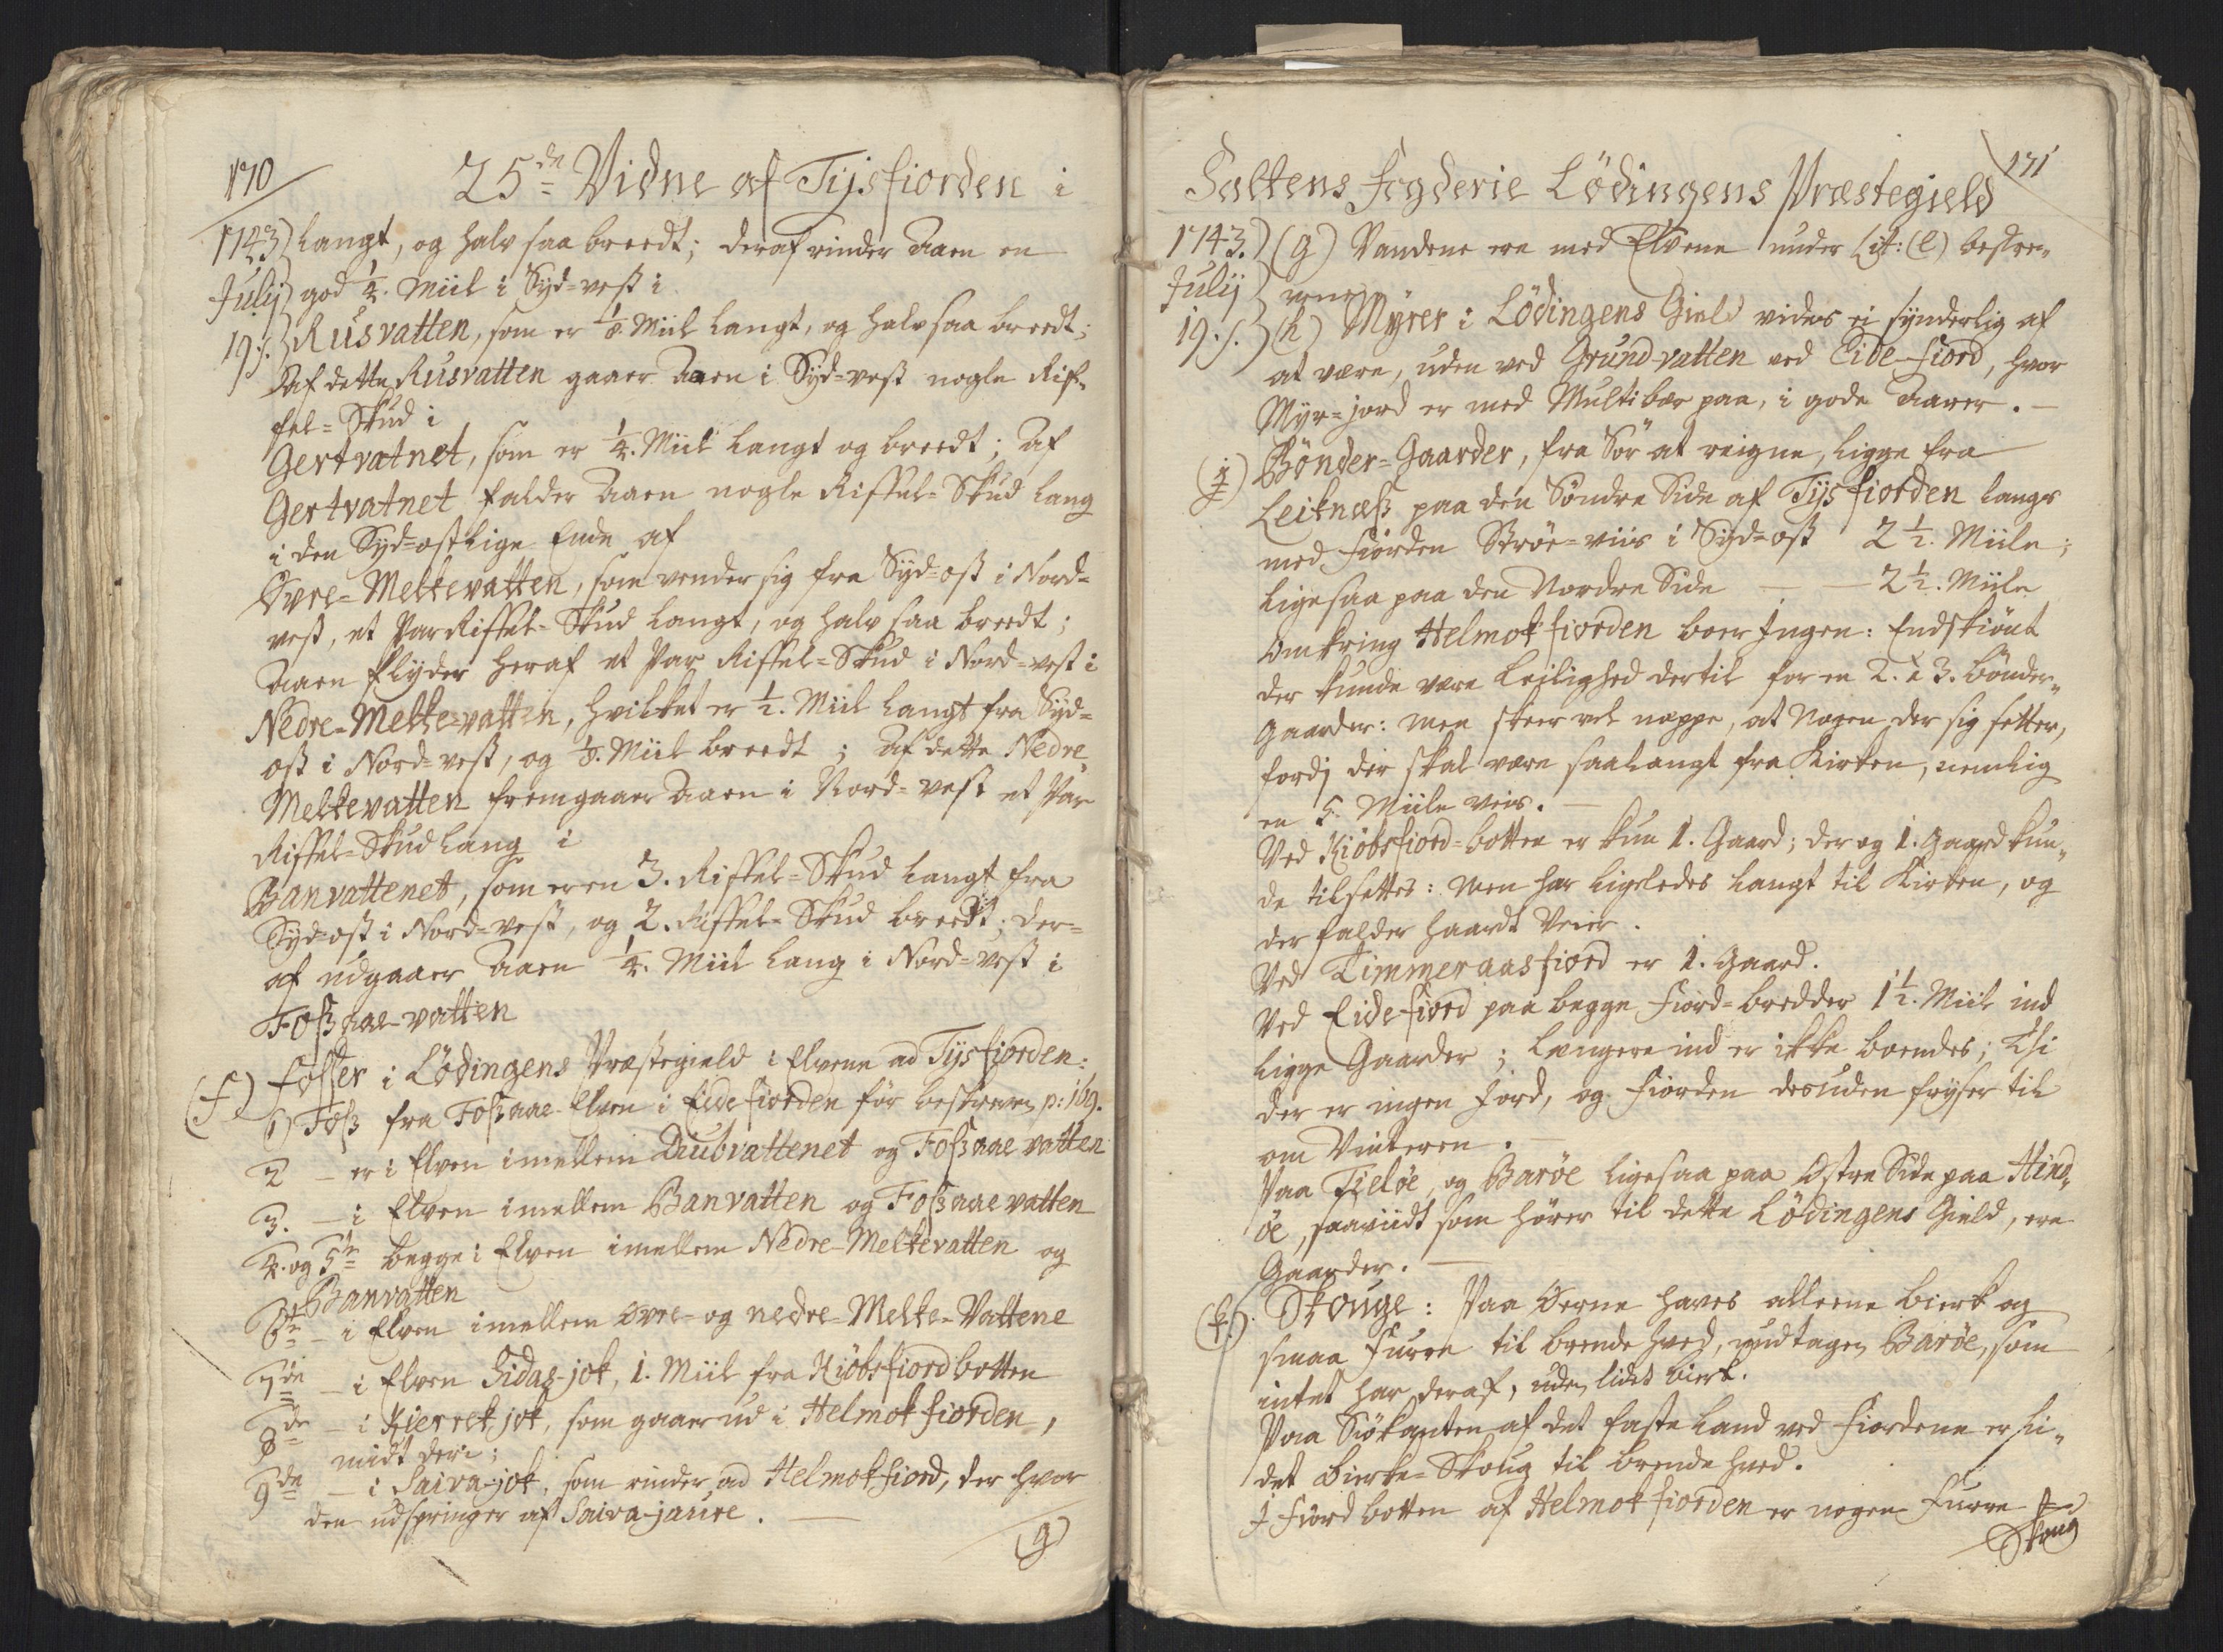 170
25de Vidne af Tysfiorden i
1743 langt, og halv saa breedt; deraf rinder Aaen en
July god 1/4. Miil i Syd=vest i
19.s. Rusvatten, som er 1/8. Miil langt, og halv saa breedt;
Af dette Rusvatten gaaer Aaen i Syd=vest nogle Rif-
fel=Skud i
Gertvatnet, som er 1/4. Miil langt og breedt; Af
Gertvatnet falder Aaen nogle Riffel=Skud lang
i den Syd=ostlige Ende af
Øvre=Melkevatten, som vender sig fra Syd=ost i Nord=
vest, et Par Riffel=Skud langt, og halv saa breedt;
Aaen flyder heraf et Par Riffel=Skud i Nord=vest i
Nedre=Melke=vatten, hvilket er 1/2. Miil langt fra Syd=
ost i Nord=vest, og 1/8. Miil breedt; Af dette Nedre
Melkevatten fremgaaer Aaen i Nord=vest et Par
Riffel=Skud lang i
Banvattenet, som er en 3. Riffel=Skud langt fra
Syd=ost i Nord=vest, og 2. Riffel=Skud breedt; der=
af udgaaer Aaen 1/4. Miil lang i Nord=vest i
Foßaae-vatten
(f) Fosser i Lödingens Præstegield i Elvene ad Tysfjorden:
1) Foß fra Foßaae-Elven i Eidefiorden før beskreven p: 169.
2 – er i Elven imellem Diubvattenet og Foßaae vatten
3. – i Elven imellem Banvatten og Foßaae vatten
4. og 5te begge i Elven imellem Nedre-Melkevatten og
Banvatten
6te – i Elven imellem øvre- og nedre-Melke-Vattene
7de – i Elven Sidas-jok, 1. Miil fra Kiöbsfiordbotten
8de – i Kierrekjok, som gaaer ud i Helmokfiorden,
midt deri;
9de – i Saiva-jok, som rinder ad Helmokfiord, der hvor
den udspringer af Saiva-jaure. –
(g)
171
Saltens Fogderie Lödingens Præstegield
1743. (g) Vandene ere med Elvene under Lit: (e) beskre-
July vene
19.s. (h) Myrer i Lödingens Gield vides ei synderlig af
at være, uden ved Grund-vatten ved Eide-fiord, hvor
Myr=jord er med Multibær paa, i gode Aarer. –
(i) Bönder=Gaarder, fra Sör at reigne, ligge fra
Leiknæß paa den Söndre Side af Tysfiorden langs
med Fiorden Ströe=viis i Syd=ost 2 1/2. Miile;
ligesaa paa den Nordre Side – – 2 1/2. Miile
Omkring Helmokfiorden boer Ingen: Endskiönt
der kunde være Leilighed dertil for en 2. à 3. Bönder-
Gaarder: men skeer vel neppe, at Nogen der sig setter,
fordj der skal være saa langt fra Kirken, nemlig
en 5. Miile veis. –
Ved Kiöbsfiord=botten er kun 1. Gaard; der og 1. Gaard kun-
de tilsettes: Men har ligeledes langt til Kirken, og
der falder haardt Veir.
Ved Timmeraasfiord er 1. Gaard.
Ved Eide-fiord paa begge Fiord=bredder 1 1/2. Miil ind
ligge Gaarder; Længere ind er ikke boendes; Thi
der er ingen Jord, og Fiorden desuden fryser til
om Vinteren. –
Paa Tieløe, og Barøe ligesaa paa Ostre Side paa Hind-
øe, saaviidt som hörer til dette Lödingens Gield, ere
Gaarder. –
(k). Skouge: Paa Øerne haves alleene Bierk og
smaa Furre til brendehved, undtagen Barøe, som
intet har deraf, uden lidet Bierk.
Paa Siökanten af det faste Land ved Fiordene er li-
det Bierke=Skoug til brendehved.
I Fiordbotten af Helmokfiorden er nogen Furre
Skoug